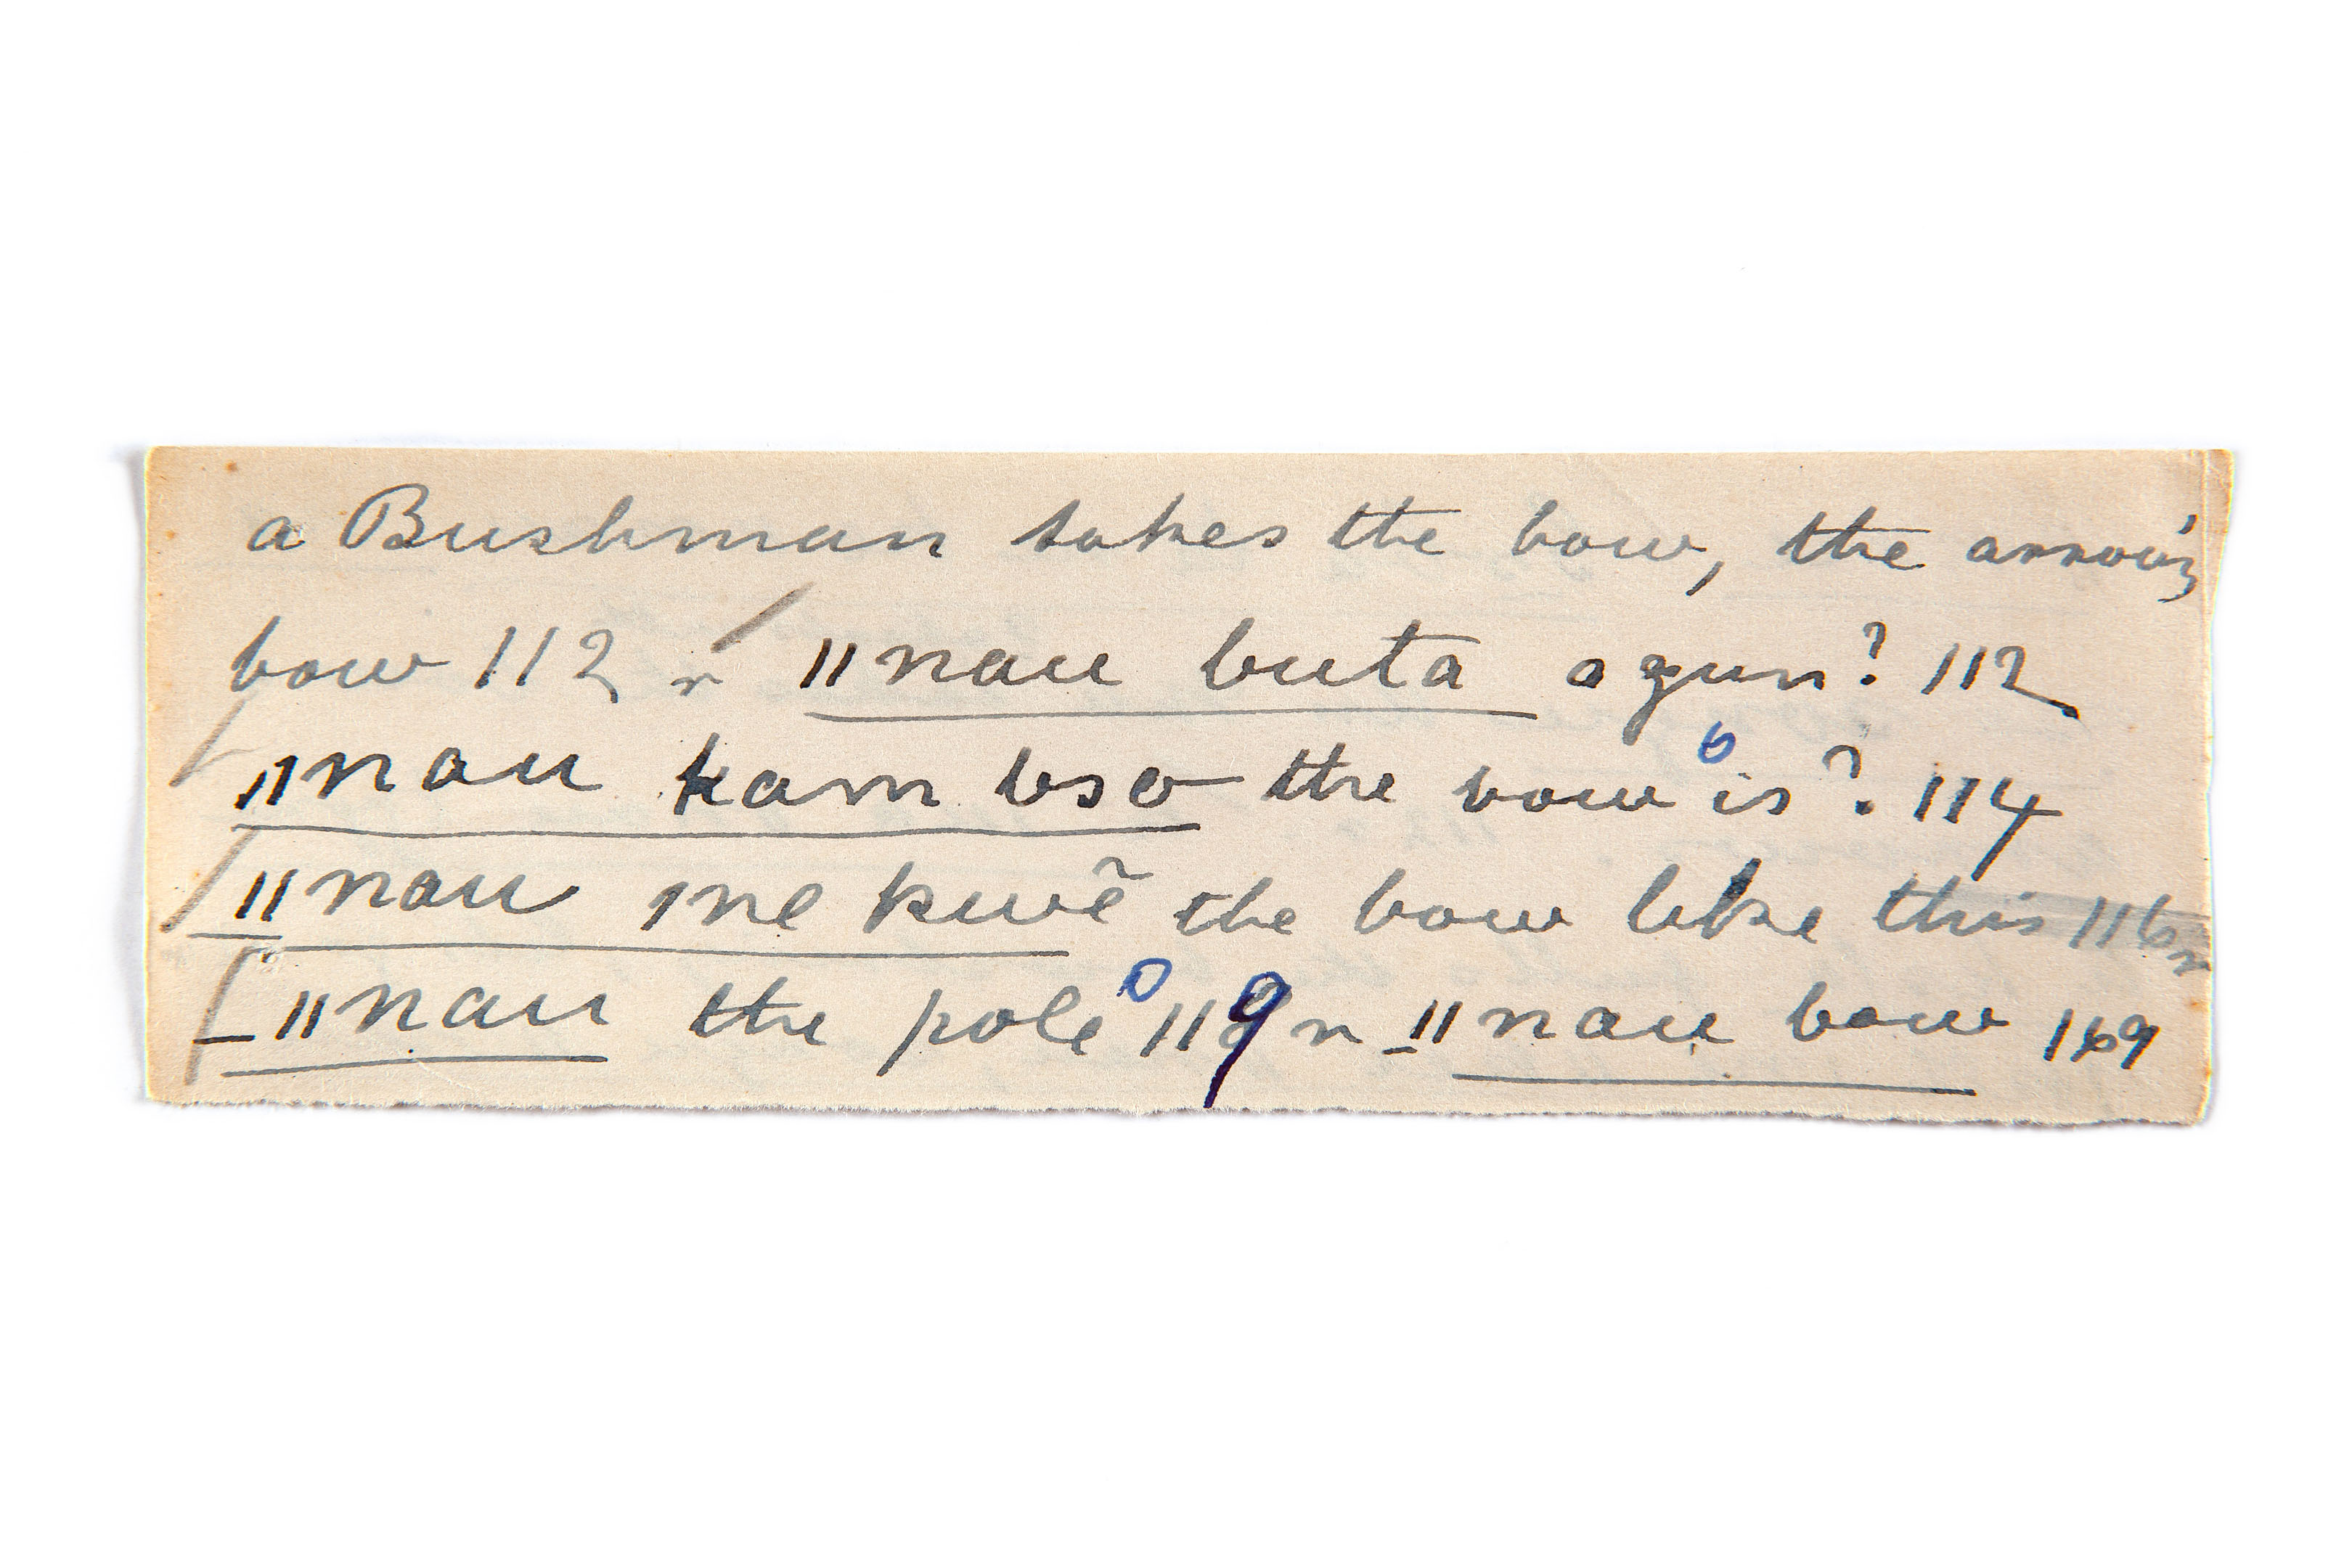 a Bushman takes the bow, the arrow's
bow 112 r ǁnau buta a gun? 112
ǁnau kam bso the bow is? 114
ǁnau ǀne kwẽ the bow like this 116 r
ǁnau the pole 119 r ǁnau bow 169